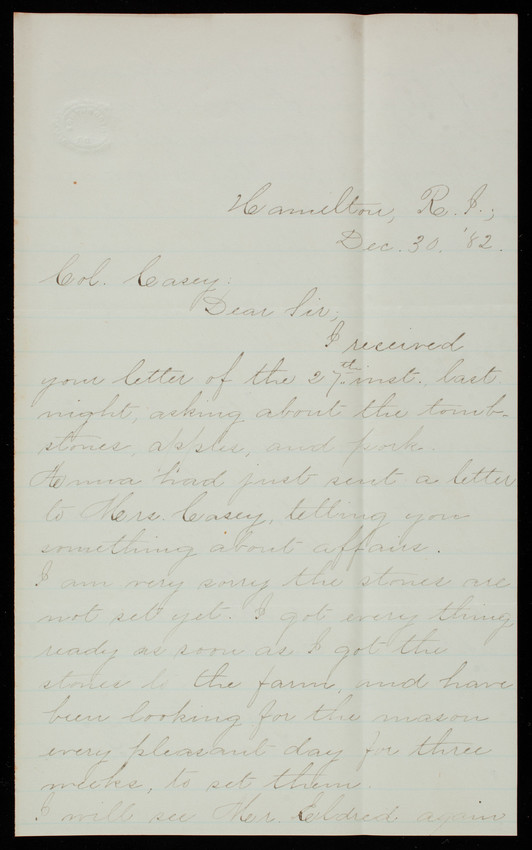 Hamilton, R. I.;
Dec. 30. '82.
Col. Casey.
Dear Sir,
I received
your letter of the 27th inst. last
night, asking about the tomb-
stones, apples, and pork.
Anna had just sent a letter
to Mrs. Casey, telling you
something about affairs.
I am very sorry the stones are
not set yet. I got every thing
ready as soon as I got the
stones to the farm, and have
been looking for the mason
every pleasant day for three
weeks, to set them.
I will see Mr. Eldred again